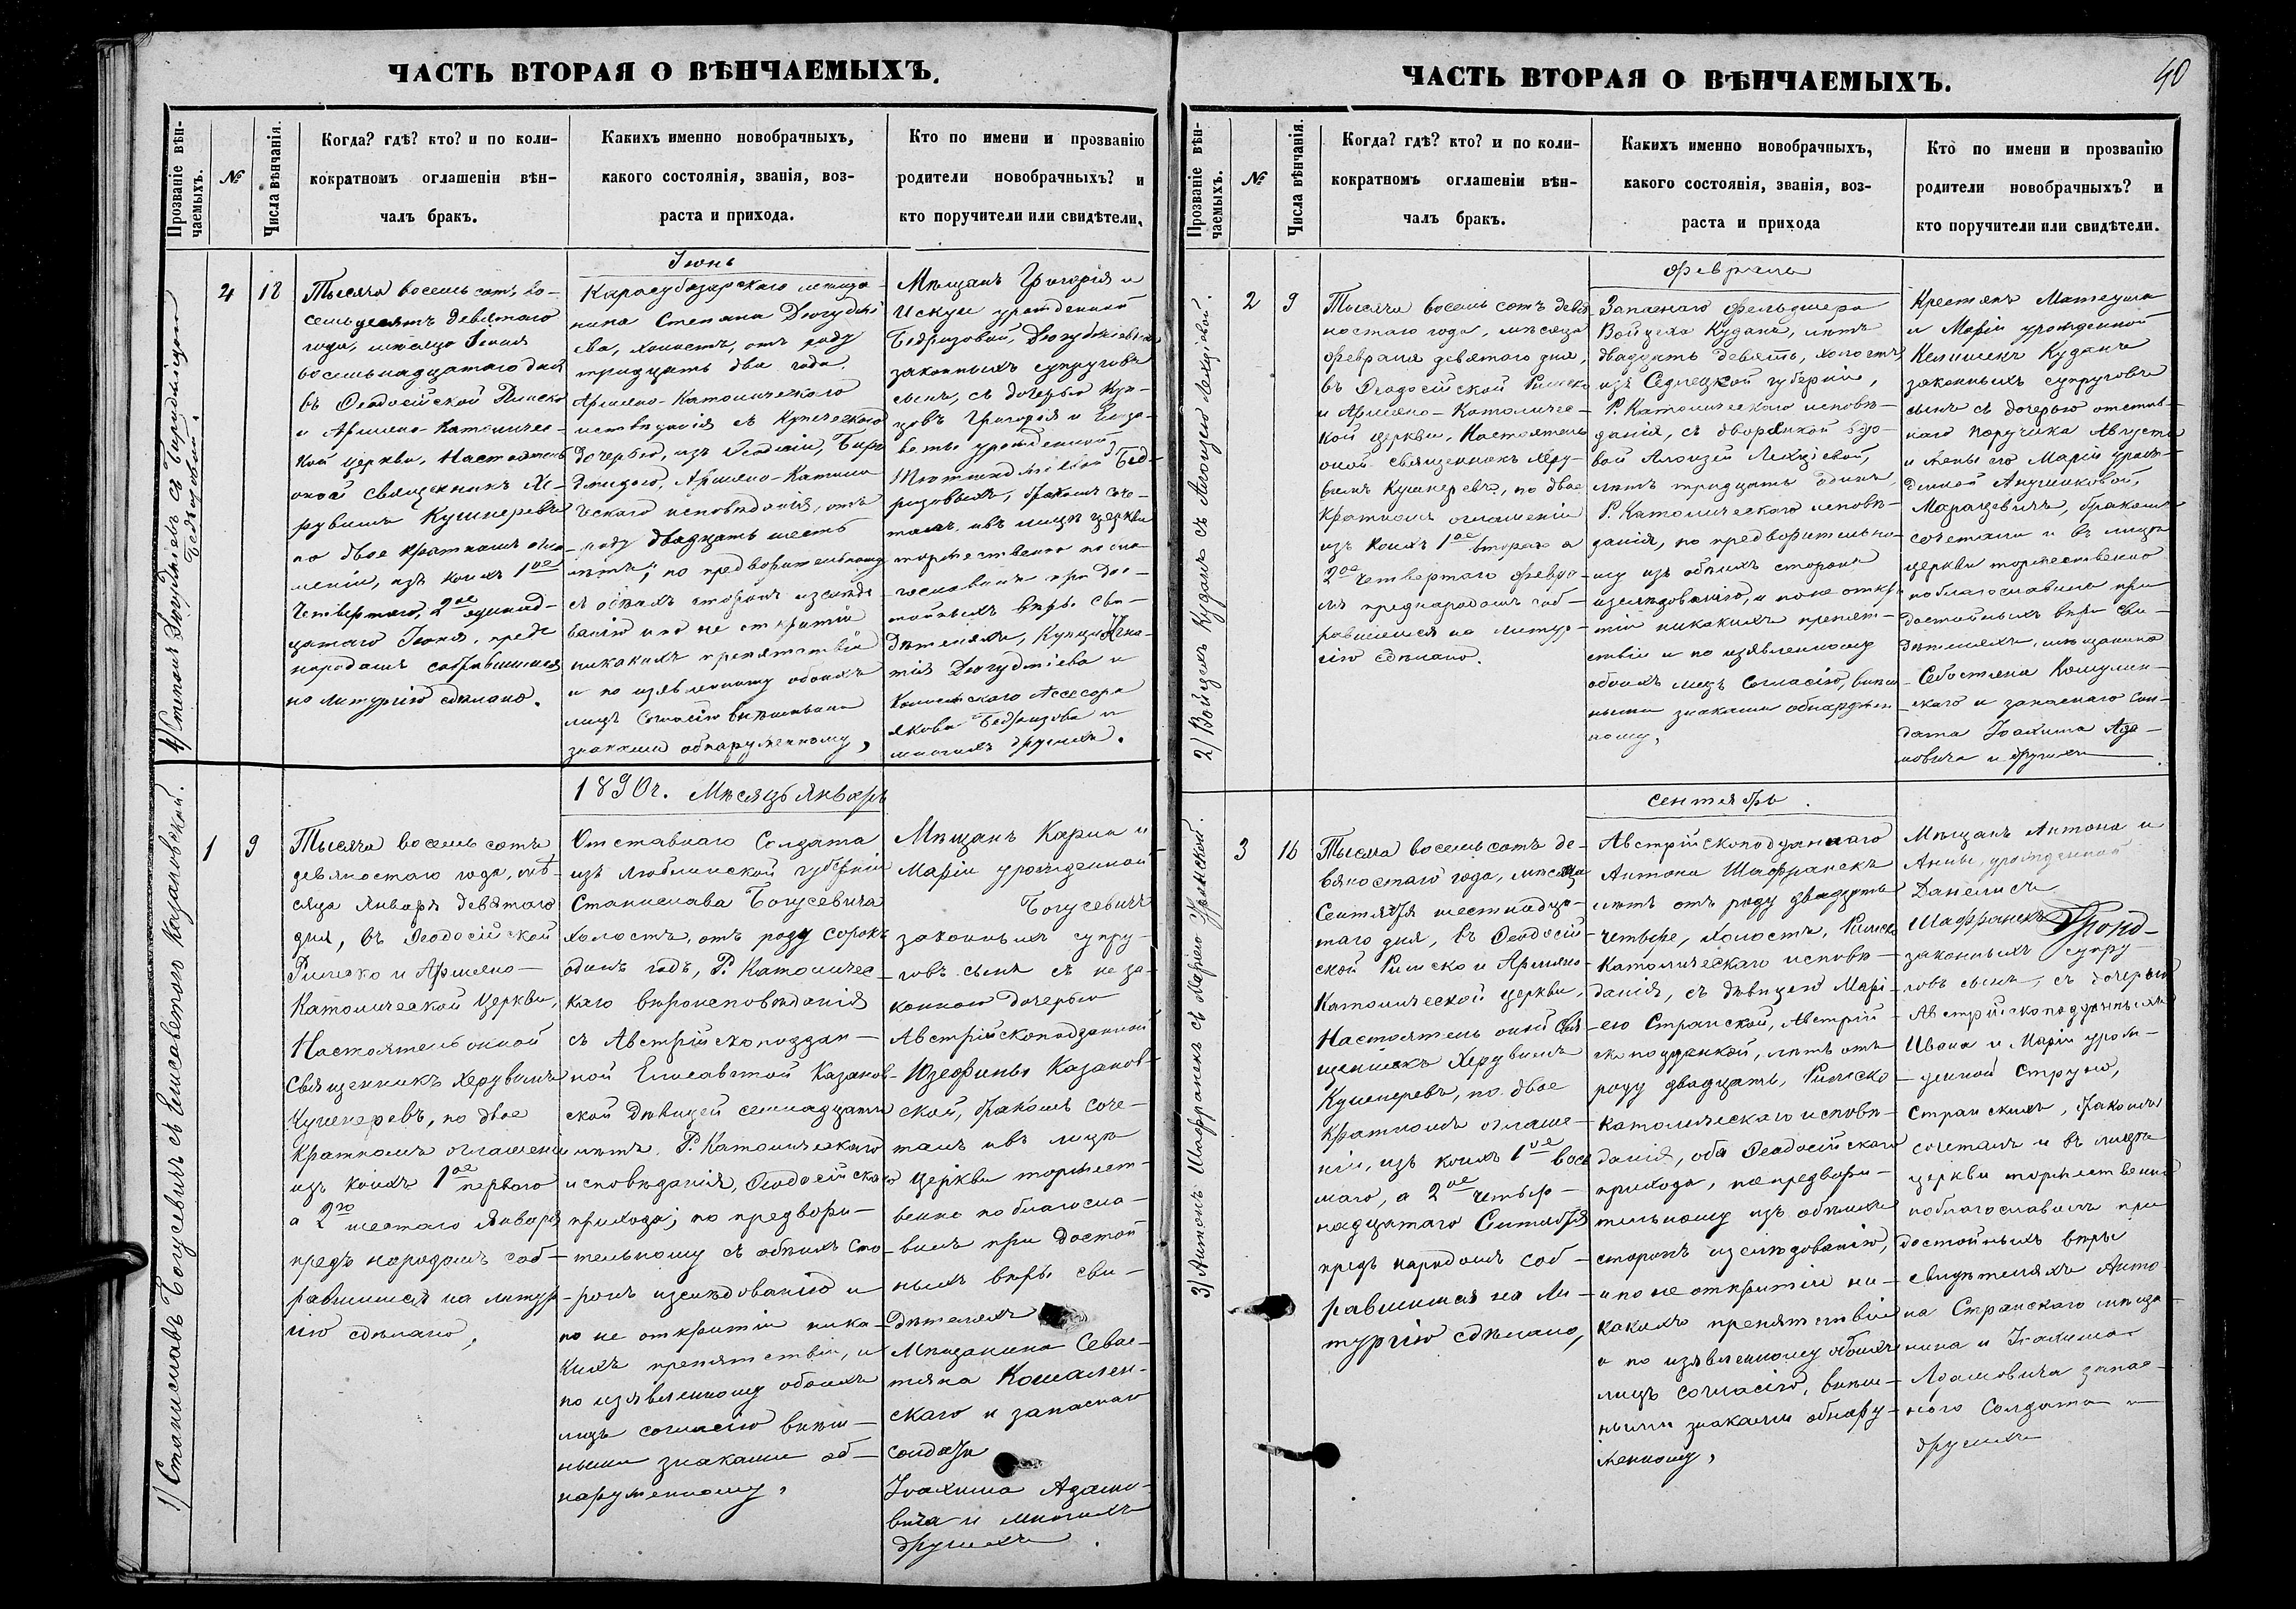 ЧАСТЬ ВТОРАЯ О ВѢНЧАЕМЫХЪ.
Прозваніе вѣн-
чаемыхъ.
№
Числа вѣнчанія.
Когда? гдѣ? кто? и по коли-
кократномъ оглашеніи вѣн-
чалъ бракъ.
Какихъ именно новобрачныхъ,
какого состоянія, званія, воз-
раста и прихода.
Кто по имени и прозванію
родители новобрачныхъ? и
кто поручители или свидѣтели.
4) Степанъ
4
18
Тысяча восемь сотъ во-
семьдесятъ девятаго
года, мѣсяца Іюня
восемьнадцатаго дня
въ Ѳеодосійской Римско
и Армяно-Католичес-
кой церкви, Настоятель
оной священникъ Хе-
рувимъ Кушнеревъ
по двое кратномъ огла-
шеніи, изъ коихъ 1ое
Четвертаго, 2ое одинад-
цатаго Іюня, предъ
народомъ собравшимся
на литургію сдѣлано.
Іюнь
Карасубазарскаго мѣща-
нина Степана
холостъ, отъ роду
тридцать два года
Армяно-Католическаго
исповѣданія съ Купеческою
дочерью, изъ Ѳеодосіи,
Армяно-Католи
ческаго исповѣданія, отъ
роду двадцать шесть
лѣтъ; по предворительному
съ обѣихъ сторонъ изслѣдо
ванію и по не открытіи
никакихъ препятствій
и по изявленному обоихъ
лицъ согласію внѣшними
знаками обнаруженному,
Мѣщанъ Григорія и
урожденной
законныхъ супруговъ
сынъ, съ дочерью Куп-
цовъ Григорія и Елиза-
веты урожденной
бракомъ соче-
талъ и въ лицѣ церкви
торжественно по бла-
гословилъ при дос-
тойныхъ вѣры сви-
дѣтеляхъ, Купца Игна-
тія
Ассесора
Якова
многихъ другихъ.
1) Станиславъ Богусевичъ съ Елисаветою Казановской.
1
9
Тысяча восемь сотъ
девяностаго года, мѣ-
сяца Января девятаго
дня, въ Ѳеодосійской
Римско и Армяно-
Католической церкви,
Настоятель оной
Священникъ Херувимъ
Кушнеревъ, по двое
кратномъ оглашеніи
изъ коихъ 1ое перваго
а 2го шестаго Января
предъ народомъ соб-
равшимся на литур
гію сдѣлано,
1890 г. Мѣсяцъ Январь
Отставнаго Солдата
изъ Люблинской губерніи
Станислава Богусевича
холостъ, отъ роду сорокъ
одинъ годъ, Р. Католичес-
каго вѣроисповѣданія
съ Австрійскоподдан-
ной Елисаветой Казанов-
ской дѣвицей семнадцати
лѣтъ, Р. Католическаго
исповѣданія, Ѳеодосійскаго
прихода; по предвори-
тельному съ обѣихъ сто-
ронъ изслѣдованію и
по не открытіи ника-
кихъ препятствій, и
по изявленному обоихъ
лицъ согласію внѣш-
ными знаками об-
наруженному,
Мѣщанъ Карла и
Маріи урожденной
Богусевичъ
законныхъ супру-
говъ сынъ съ не за-
конною дочерью
Австрійскоподданной
Юзефины Казанов-
ской, бракомъ соче-
талъ и въ лицѣ
церкви торжест-
венно поблагосло-
вилъ при достой
ныхъ вѣры сви-
дѣтеляхъ
Мѣщанина Севас-
тяна
скаго и запаснаго
солдата
Іоахима Адамо-
вича и многихъ
другихъ.
ЧАСТЬ ВТОРАЯ О ВѢНЧАЕМЫХЪ.
40
Прозваніе вѣн-
чаемыхъ.
№
Числа вѣнчанія.
Когда? гдѣ? кто? и по коли-
кократномъ оглашеніи вѣн-
чалъ бракъ.
Какихъ именно новобрачныхъ,
какого состоянія, званія, воз-
раста и прихода
Кто по имени и прозванію
родители новобрачныхъ? и
кто поручители или свидѣтели.
2) Войцехъ Куданъ съ Алоизею
2
9
Тысяча восемь сотъ девя
ностаго года, мѣсяца
Февраля девятаго дня,
въ Ѳеодосійской Римско
и Армяно-Католичес-
кой церкви, Настоятель
оной священникъ Херу-
вимъ Кушнеревъ, по двое
кратномъ оглашеніи
изъ коихъ 1ое втораго а
2ое четвертаго Февра-
ля предъ народомъ соб-
равшимся на литур-
гію сдѣлано.
Февраль
Запаснаго фельдшера
Войцеха Кудана, лѣтъ
двадцать девять, холостъ,
изъ Седлецкой губерніи,
Р. Католическаго исповѣ-
данія, съ дворянкой вдо-
вой Алоизей
лѣтъ тридцать одинъ,
Р. Католическаго исповѣ-
данія, по предворительно-
му изъ обѣихъ сторонъ
изслѣдованію, и по не откры
тіи никакихъ препят-
ствій и по изявленному
обоихъ лицъ согласію, внѣш
ными знаками обнаружен
ному,
Крестянъ Матеуша
и Маріи урожденной
Куданъ
законныхъ супруговъ
сынъ съ дочерью отстав-
наго Поручика Августа
и жены его Маріи урож-
денной
бракомъ
сочеталъ и въ лицѣ
церкви торжественно
поблагословилъ при
достойныхъ вѣры сви-
дѣтеляхъ, мѣщанина
Себастяна
скаго и запаснаго сол-
дата Іоахима Ада-
мовича и другихъ.
3) Антонъ Шафранекъ съ Маріею Странской.
3
16
Тысяча восемь сотъ де-
вяностаго года, мѣсяца
Сентября шестнадца-
таго дня, въ Ѳеодосій-
ской Римско и Армяно-
Католической церкви,
Настоятель оной Свя-
щенникъ Херувимъ
Кушнеревъ, по двое
кратномъ оглаше-
ніи, изъ коихъ 1ое вось
маго, а 2ое четыр-
надцатаго Сентября
предъ народомъ соб-
равшимся на ли-
тургію сдѣлано,
сентябрь.
Австрійскоподданнаго
Антона Шафранекъ
лѣтъ отъ роду двадцать
четыре, холостъ, Римско
Католическаго исповѣ-
данія, съ дѣвицею Марі-
ею Странской, Австрій-
скоподданкой, лѣтъ отъ
роду двадцать, Римско
католическаго исповѣ-
данія, оба Ѳеодосійскаго
прихода, по предвори-
тельному изъ обѣихъ
сторонъ изслѣдованію,
и по не открытіи ни-
какихъ препятствій
и по изявленному обоихъ
лицъ согласію, внѣш-
ными знаками обнару-
женному,
Мѣщанъ Антона и
Анны, урожденной
Шафранекъ
законныхъ супру-
говъ сынъ, съ дочерью
Австрійскоподданныхъ
Ивана и Маріи урож-
денной
Странскихъ, бракомъ
сочеталъ и въ лицѣ
церкви торжественно
поблагословилъ при
достойныхъ вѣры
свидѣтеляхъ Анто
на Странскаго мѣща-
нина и Іоахима
Адамовича запас-
наго Солдата и
другихъ